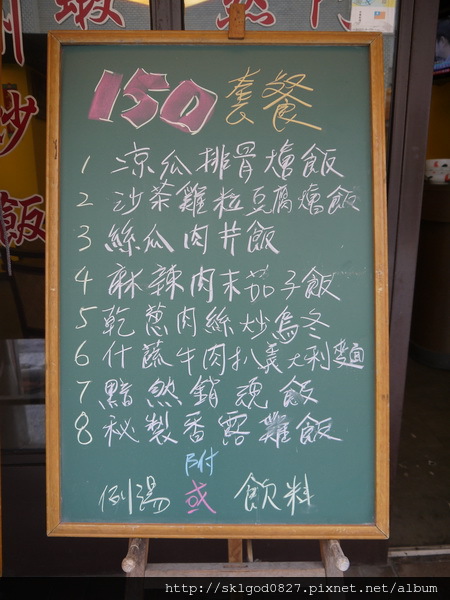 蝦
炒
飯
150 套餐
1 涼瓜排骨燴飯
2 沙茶雞粒豆腐燴飯
3 絲瓜肉丼飯
4 麻辣肉末茄子飯
5 乾蔥肉絲炒烏冬
6 什蔬牛肉扒義大利麵
7 黯然銷魂飯
8 秘製香露雞飯
附
例湯 或 飲料
http://sklgod0827.pixnet.net/album